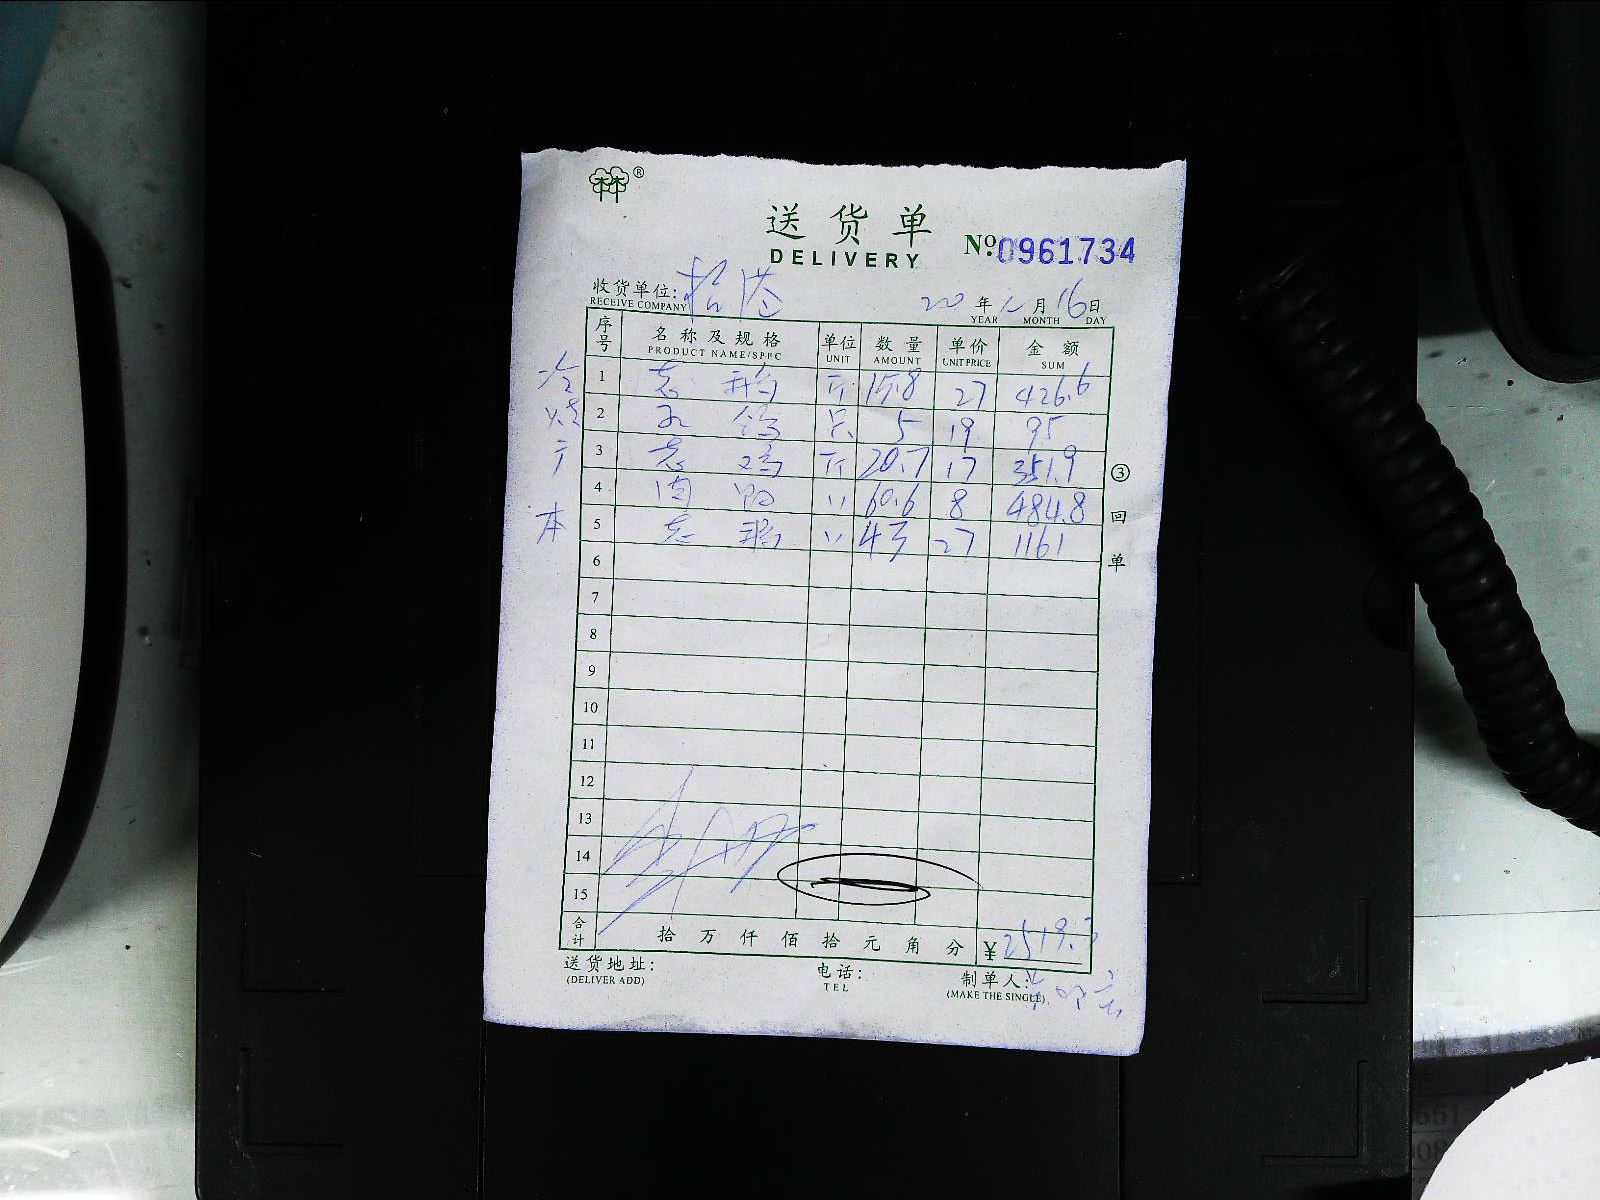 ®
送货单
DELIVERY
Nº. 0961734
收货单位:
RECEIVE COMPANY
20 年 月 16 日
YEAR MONTH DAY
序号 名称及规格 单位 数量 单价 金额
PRODUCT NAME/SPEC UNIT AMOUNT UNIT PRICE SUM
1 斤 15.8 27 426.6
2 只 5 19 95
3 斤 20.7 17 351.9
4 〃 60.6 8 484.8
5 〃 43 27 1161
6
7
8
9
10
11
12
13
14
15
合计 拾 万 仟 佰 拾 元 角 分 ¥2519.3
送货地址: 电话: 制单人:
(DELIVER ADD) TEL (MAKE THE SINGLE)
③回单
本